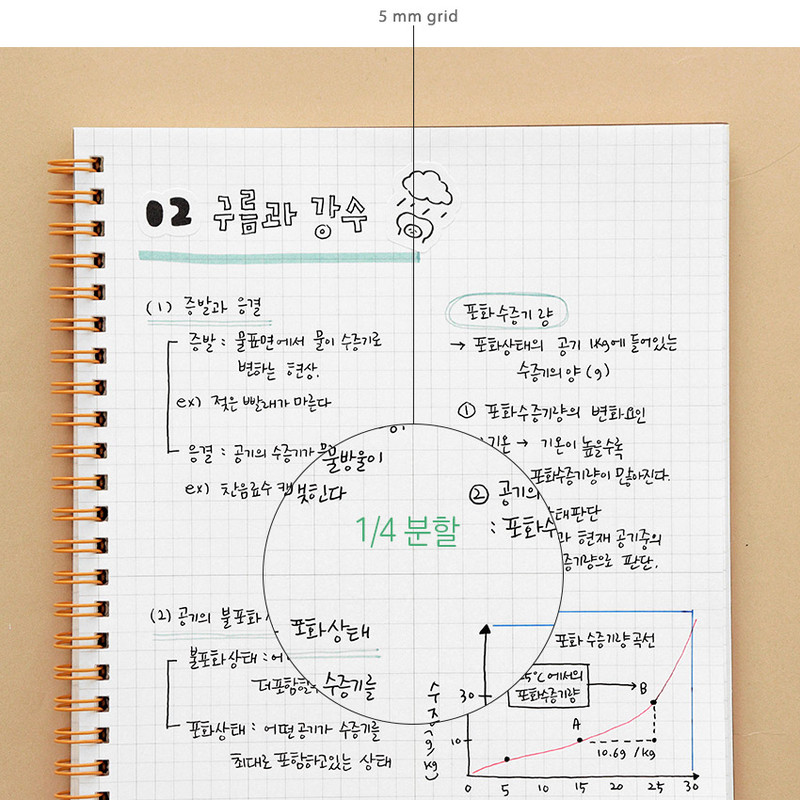 5 mm grid
02 구름과 강수
(1) 증발과 응결
증발 : 물표면에서 물이 수증기로
변하는 현상.
ex) 젖은 빨래가 마른다
응결 : 공기의 수증기가 물방울이
ex) 찬음료수 맺힌다
(2) 공기의 불포화
포화상태
불포화상태 :
더포함 수증기를
포화상태 : 어떤공기가 수증기를
최대로 포함하고있는 상태
1/4 분할
포화수증기량
→ 포화상태의 공기 1kg에 들어있는
수증기의 양 (g)
① 포화수증기량의 변화요인
기온 → 기온이 높을수록
포화수증기량이 많아진다.
② 공기의
상태판단
: 포화수 현재 공기중의
증기량으로 판단.
포화수증기량곡선
5°C에서의
포화수증기량
B
A
30
10
10.6g /kg
0 5 10 15 20 25 30